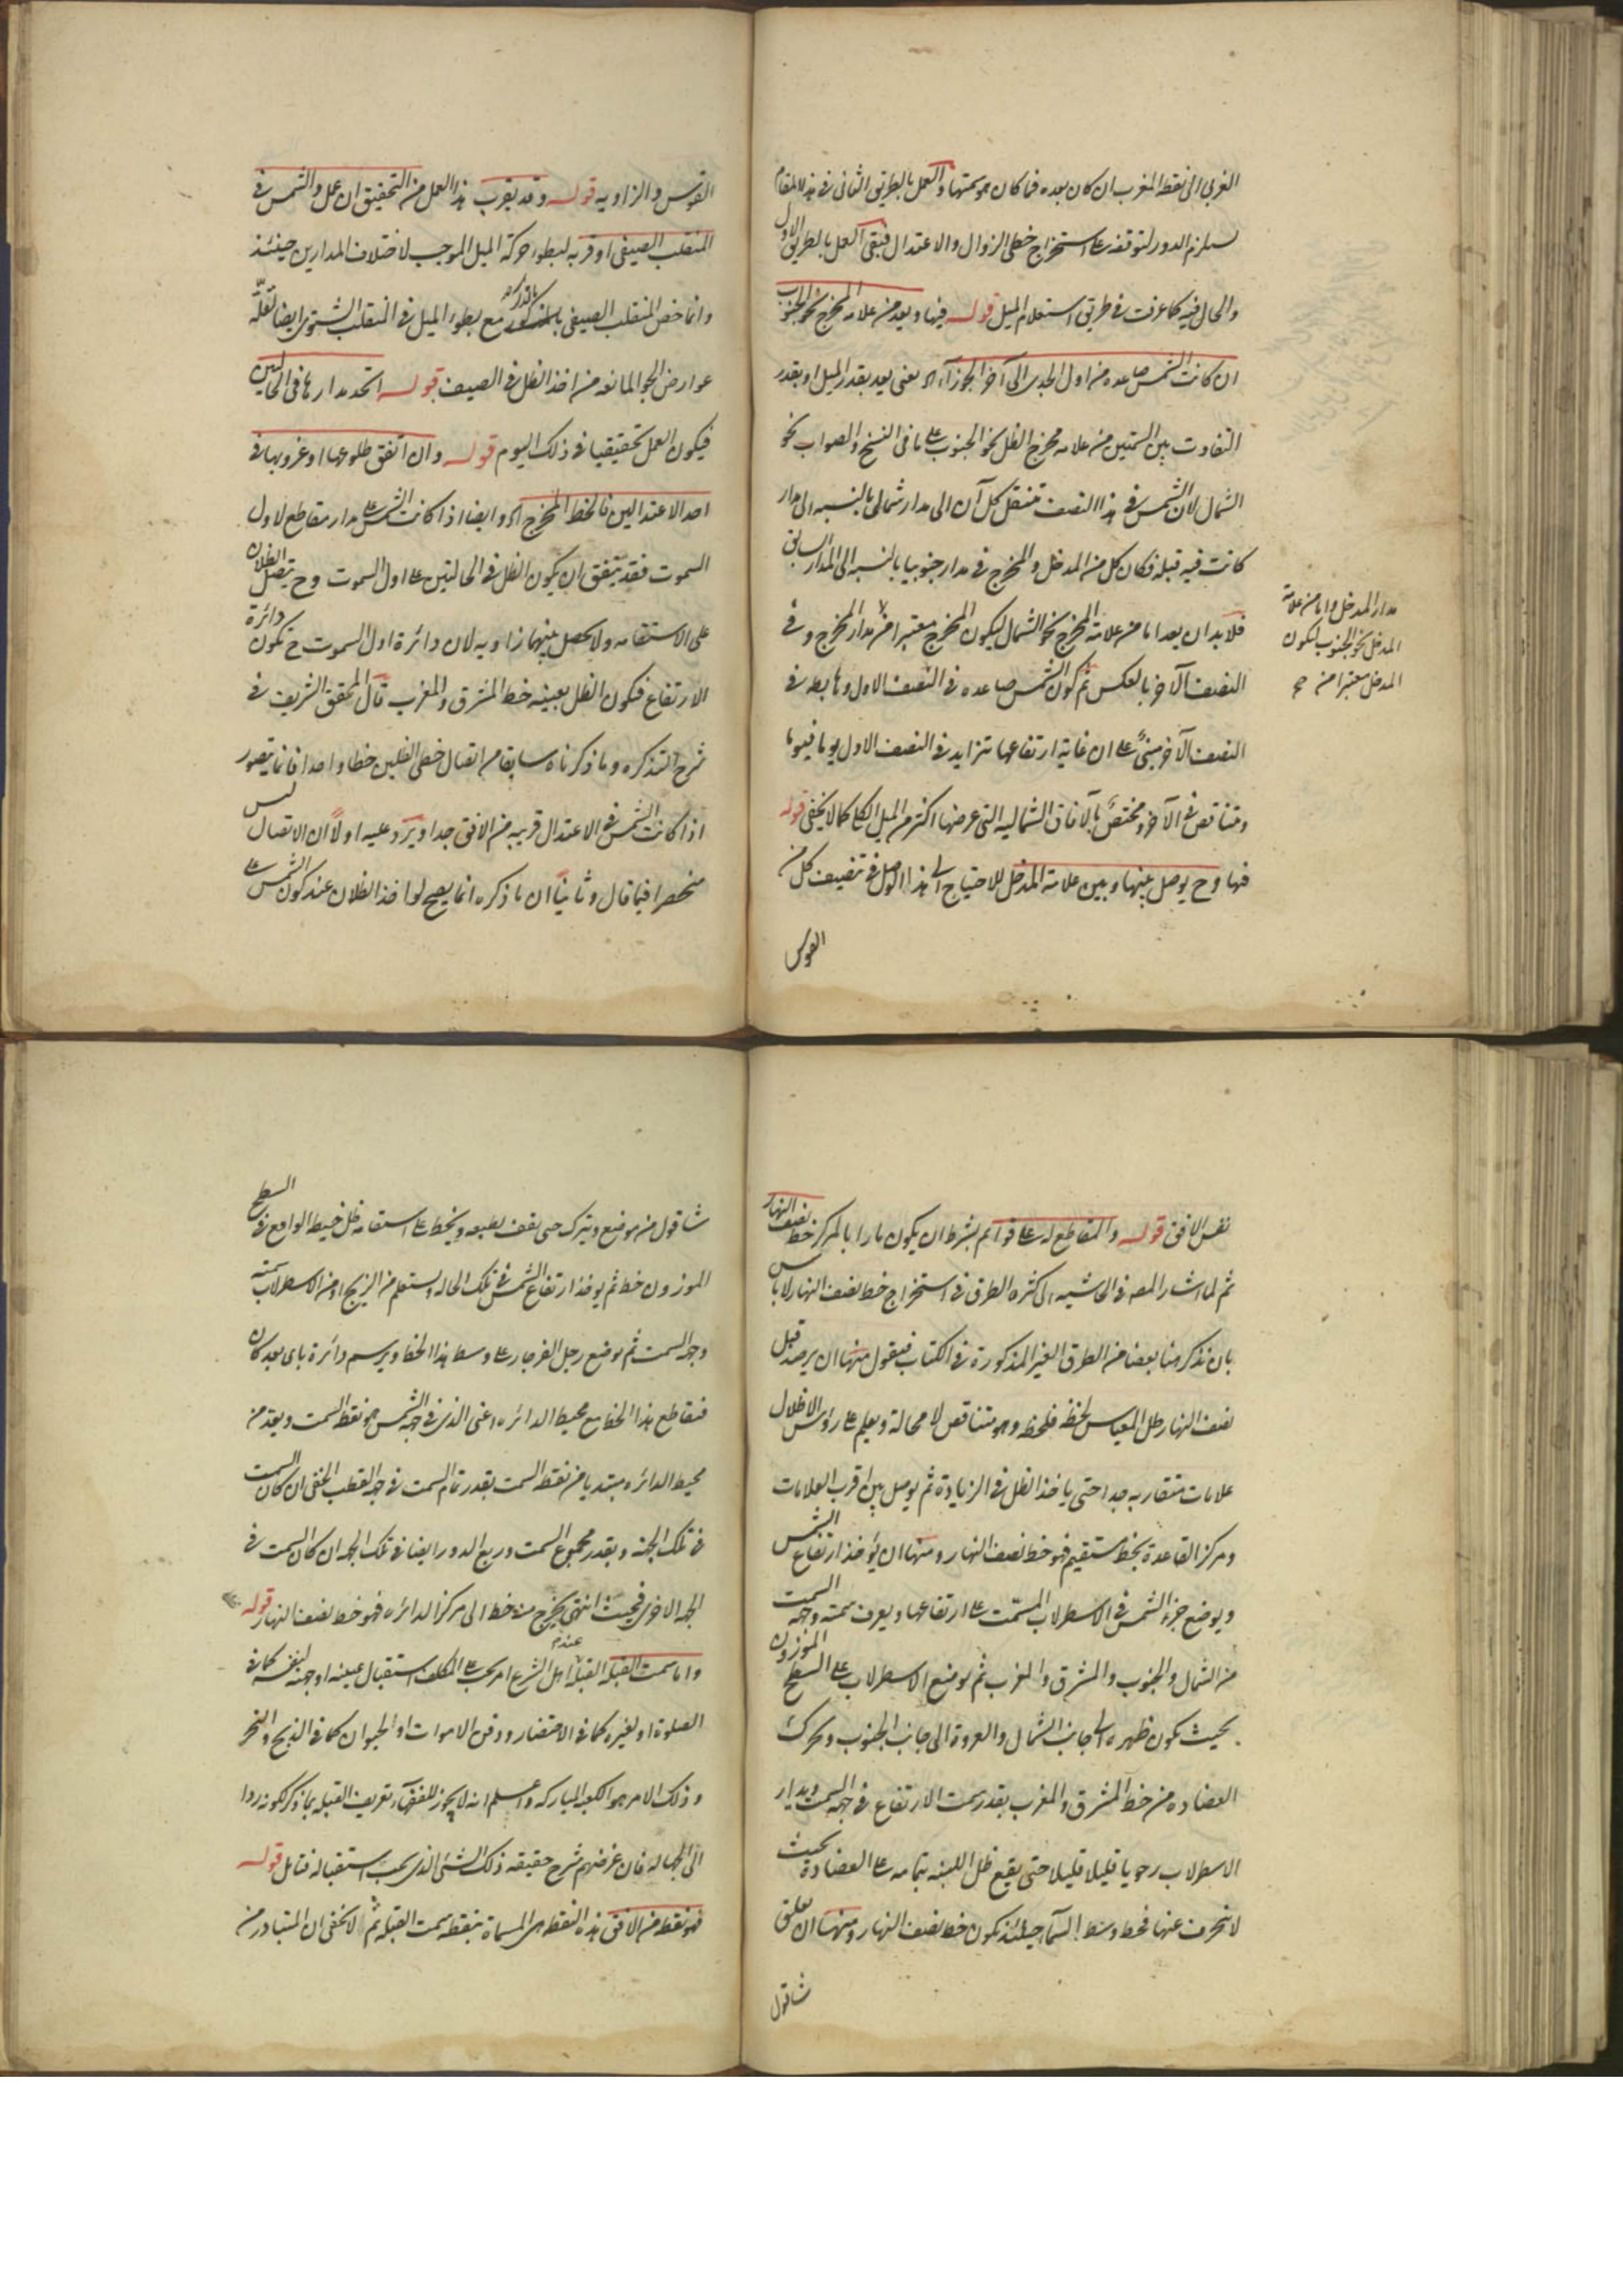 الغربى الى نقطة المغرب ان كان بعده فما كان هو سمتها والعمل بالطريق الثانى فى هذا المقام
يستلزم الدور لتوقفه على استخراج خطى الزوال والاعتدال فبقى العمل بالطريق الاول
والحال فيه كما عرفت فى طريق استعلام الميل قوله فيها ويعد من علامة المخرج نحو الجنوب
ان كانت الشمس صاعدة من اول الجدى الى آخر الجوزاء اه يعنى يعد بقدر الميل او بقدر
التفاوت بين السمتين من علامة مخرج الظل نحو الجنوب على ما فى النسخ والصواب نحو
الشمال لان الشمس فى هذا النصف تنتقل كل آن الى مدار شمالى بالنسبة الى مدار
كانت فيه قبله فكان كل من المدخل والمخرج فى مدار جنوبيا بالنسبة الى المدار السابق
فلا بد ان يعد اما من علامة المخرج نحو الشمال ليكون المخرج معتبرا من مدار المخرج وفى
مدار المدخل واما من علامة
المدخل نحو الجنوب ليكون
المدخل معتبرا من صح
النصف الآخر بالعكس ثم كون الشمس صاعدة فى النصف الاول وهابطة فى
النصف الآخر مبنى على ان غاية ارتفاعها تتزايد فى النصف الاول يوما فيوما
وتتناقص فى الآخر ومختص بالآفاق الشمالية التى عرضها اكثر من الميل الكلى كما لا يخفى قوله
فيها وح يوصل بينها وبين علامة المدخل للاحتياج الى هذا الوصل فى تنصيف كل من
القوس
القوس والزاوية قوله وقد يقرب هذا العمل من التحقيق ان عمل والشمس فى
المنقلب الصيفى او قربه لبطوء حركة الميل الموجب لاختلاف المدارين حينئذ
وانما خص المنقلب الصيفى بالذكر مع بطوء الميل فى المنقلب الشتوى ايضا لقلة
عوارض الجو المانعة من اخذ الظل فى الصيف قوله اتحد مدارها فى الحالين
فيكون العمل تحقيقيا فى ذلك اليوم قوله وان اتفق طلوعها او غروبها فى
احد الاعتدالين فالخط المخرج اه وايضا اذا كانت الشمس على مدار مقاطع لاول
السموت فقد يتفق ان يكون الظل فى الحالتين على اول السموت وح يتصل الظلان
على الاستقامة ولا يحصل بينهما زاوية لان دائرة اول السموت ح تكون دائرة
الارتفاع فيكون الظل بعينه خط المشرق والمغرب قال المحقق الشريف فى
شرح التذكرة وما ذكرناه سابقا من اتصال خطى الظلين خطا واحدا فانما يتصور
اذا كانت الشمس فى الاعتدال قريبة من الافق جدا ويرد عليه اولا ان الاتصال ليس
منحصرا فيما قال وثانيا ان ما ذكره انما يصح لو اخذ الظلان عند كون الشمس على
نفس الافق قوله والمقاطع له على قوائم بشرط ان يكون مارا بالمركز خط نصف النهار
ثم لما اشار المصه فى الحاشية الى كثرة الطرق فى استخراج خط نصف النهار لا باس
بان نذكر هنا بعضا من الطرق الغير المذكورة فى الكتاب فنقول منها ان يرصد قبل
نصف النهار ظل المقياس لحظة فلحظة وهو متناقص لا محالة ويعلم على رؤس الاظلال
علامات متقاربة جدا حتى ياخذ الظل فى الزيادة ثم يوصل بين اقرب العلامات
ومركز القاعدة بخط مستقيم فهو خط نصف النهار ومنها ان يؤخذ ارتفاع الشمس
ويوضع جزء الشمس فى الاسطرلاب المسمت على ارتفاعها ويعرف سمته وجهة السمت
من الشمال والجنوب والمشرق والمغرب ثم يوضع الاسطرلاب على السطح الموزون
بحيث يكون ظهره الى جانب الشمال والعروة الى جانب الجنوب ويحرك
العضادة من خط المشرق والمغرب بقدر سمت الارتفاع فى جهة السمت ويدار
الاسطرلاب رحويا قليلا قليلا حتى يقع ظل اللبنة بتمامه على العضادة بحيث
لا ينحرف عنها فخط وسط السماء حينئذ يكون خط نصف النهار ومنها ان يعلق
شاقول
شاقول من موضع ويترك حتى يقف بطبعه ويخط على استقامة ظل خيطه الواقع فى السطح
الموزون خط ثم يؤخذ ارتفاع الشمس فى تلك الحالة ويستعلم من الزيج او من الاسطرلاب سمته
وجهة السمت ثم يوضع رجل الفرجار على وسط هذا الخط ويرسم دائرة باى بعد كان
فتقاطع هذا الخط مع محيط الدائرة اعنى الذى فى جهة الشمس هو نقطة السمت ويعد من
محيط الدائرة مبتديا من نقطة السمت بقدر تمام السمت فى جهة القطب الخفى ان كان السمت
فى تلك الجهة وبقدر مجموع السمت وربع الدور ايضا فى تلك الجهة ان كان السمت فى
الجهة الاخرى فحيث انتهى يخرج منه خط الى مركز الدائرة فهو خط نصف النهار قوله
واما سمت القبلة القبلة عند اهل الشرع امر يجب على المكلف استقبال عينه او جهته لنفسه كما فى
الصلوة او لغيره كما فى الاحتضار ودفن الاموات او الحيوان كما فى الذبح والنحر
وذلك الامر هو الكعبة المباركة واعلم انه لا يجوز للفقهاء تعريف القبلة بما ذكر لكونه ردا
الى الجهالة فان غرضهم شرح حقيقة ذلك الشئ الذى يجب استقباله فتامل قوله
فهو نقطة من الافق هذه النقطة هى المسماة بنقطة سمت القبلة ثم لا يخفى ان المتبادر من